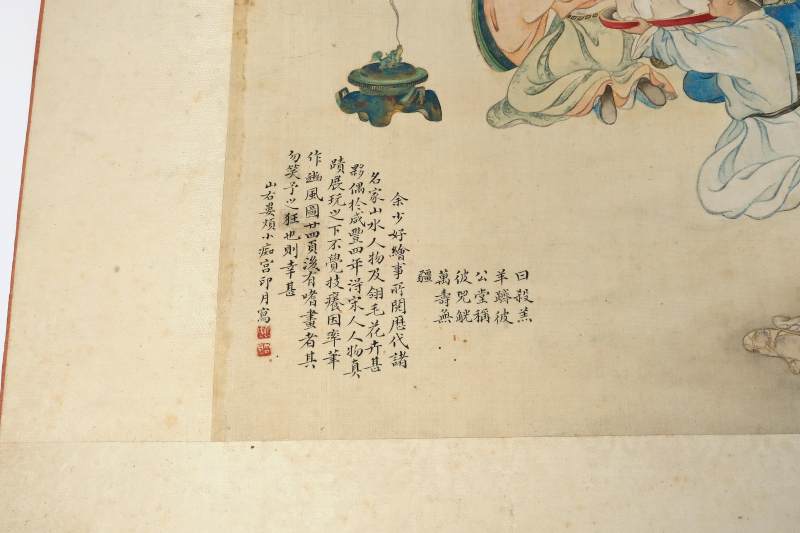 曰殺羔
羊躋彼
公堂稱
彼兕觥
萬壽無
疆
余少好繪事所閱歷代諸
名家山水人物及翎毛花卉甚
夥偶於咸豐四年得宋人人物真
蹟展玩之下不覺技癢因率筆
作豳風圖廿四頁後有嗜畫者其
勿笑予之狂也則幸甚
山右婁煩小痴宮印月寫